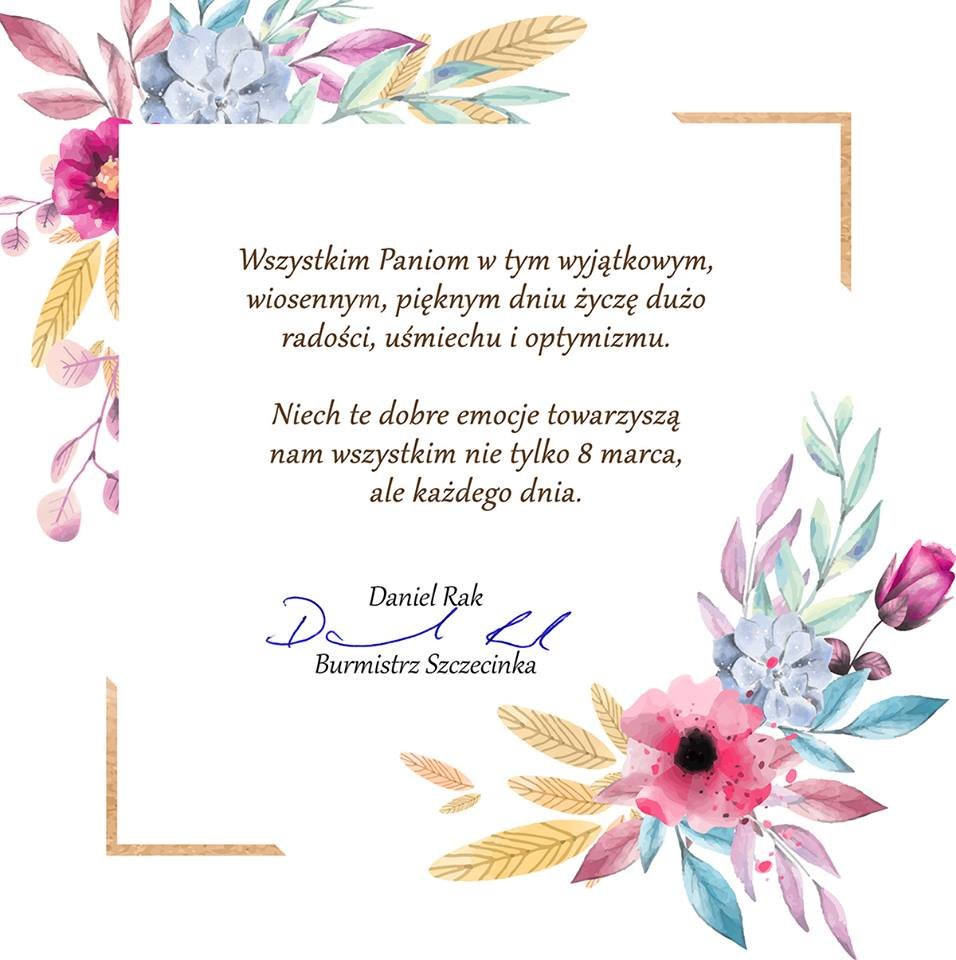 Wszystkim Paniom w tym wyjątkowym,
wiosennym, pięknym dniu życzę dużo
radości, uśmiechu i optymizmu.
Niech te dobre emocje towarzyszą
nam wszystkim nie tylko 8 marca,
ale każdego dnia.
Daniel Rak
Burmistrz Szczecinka